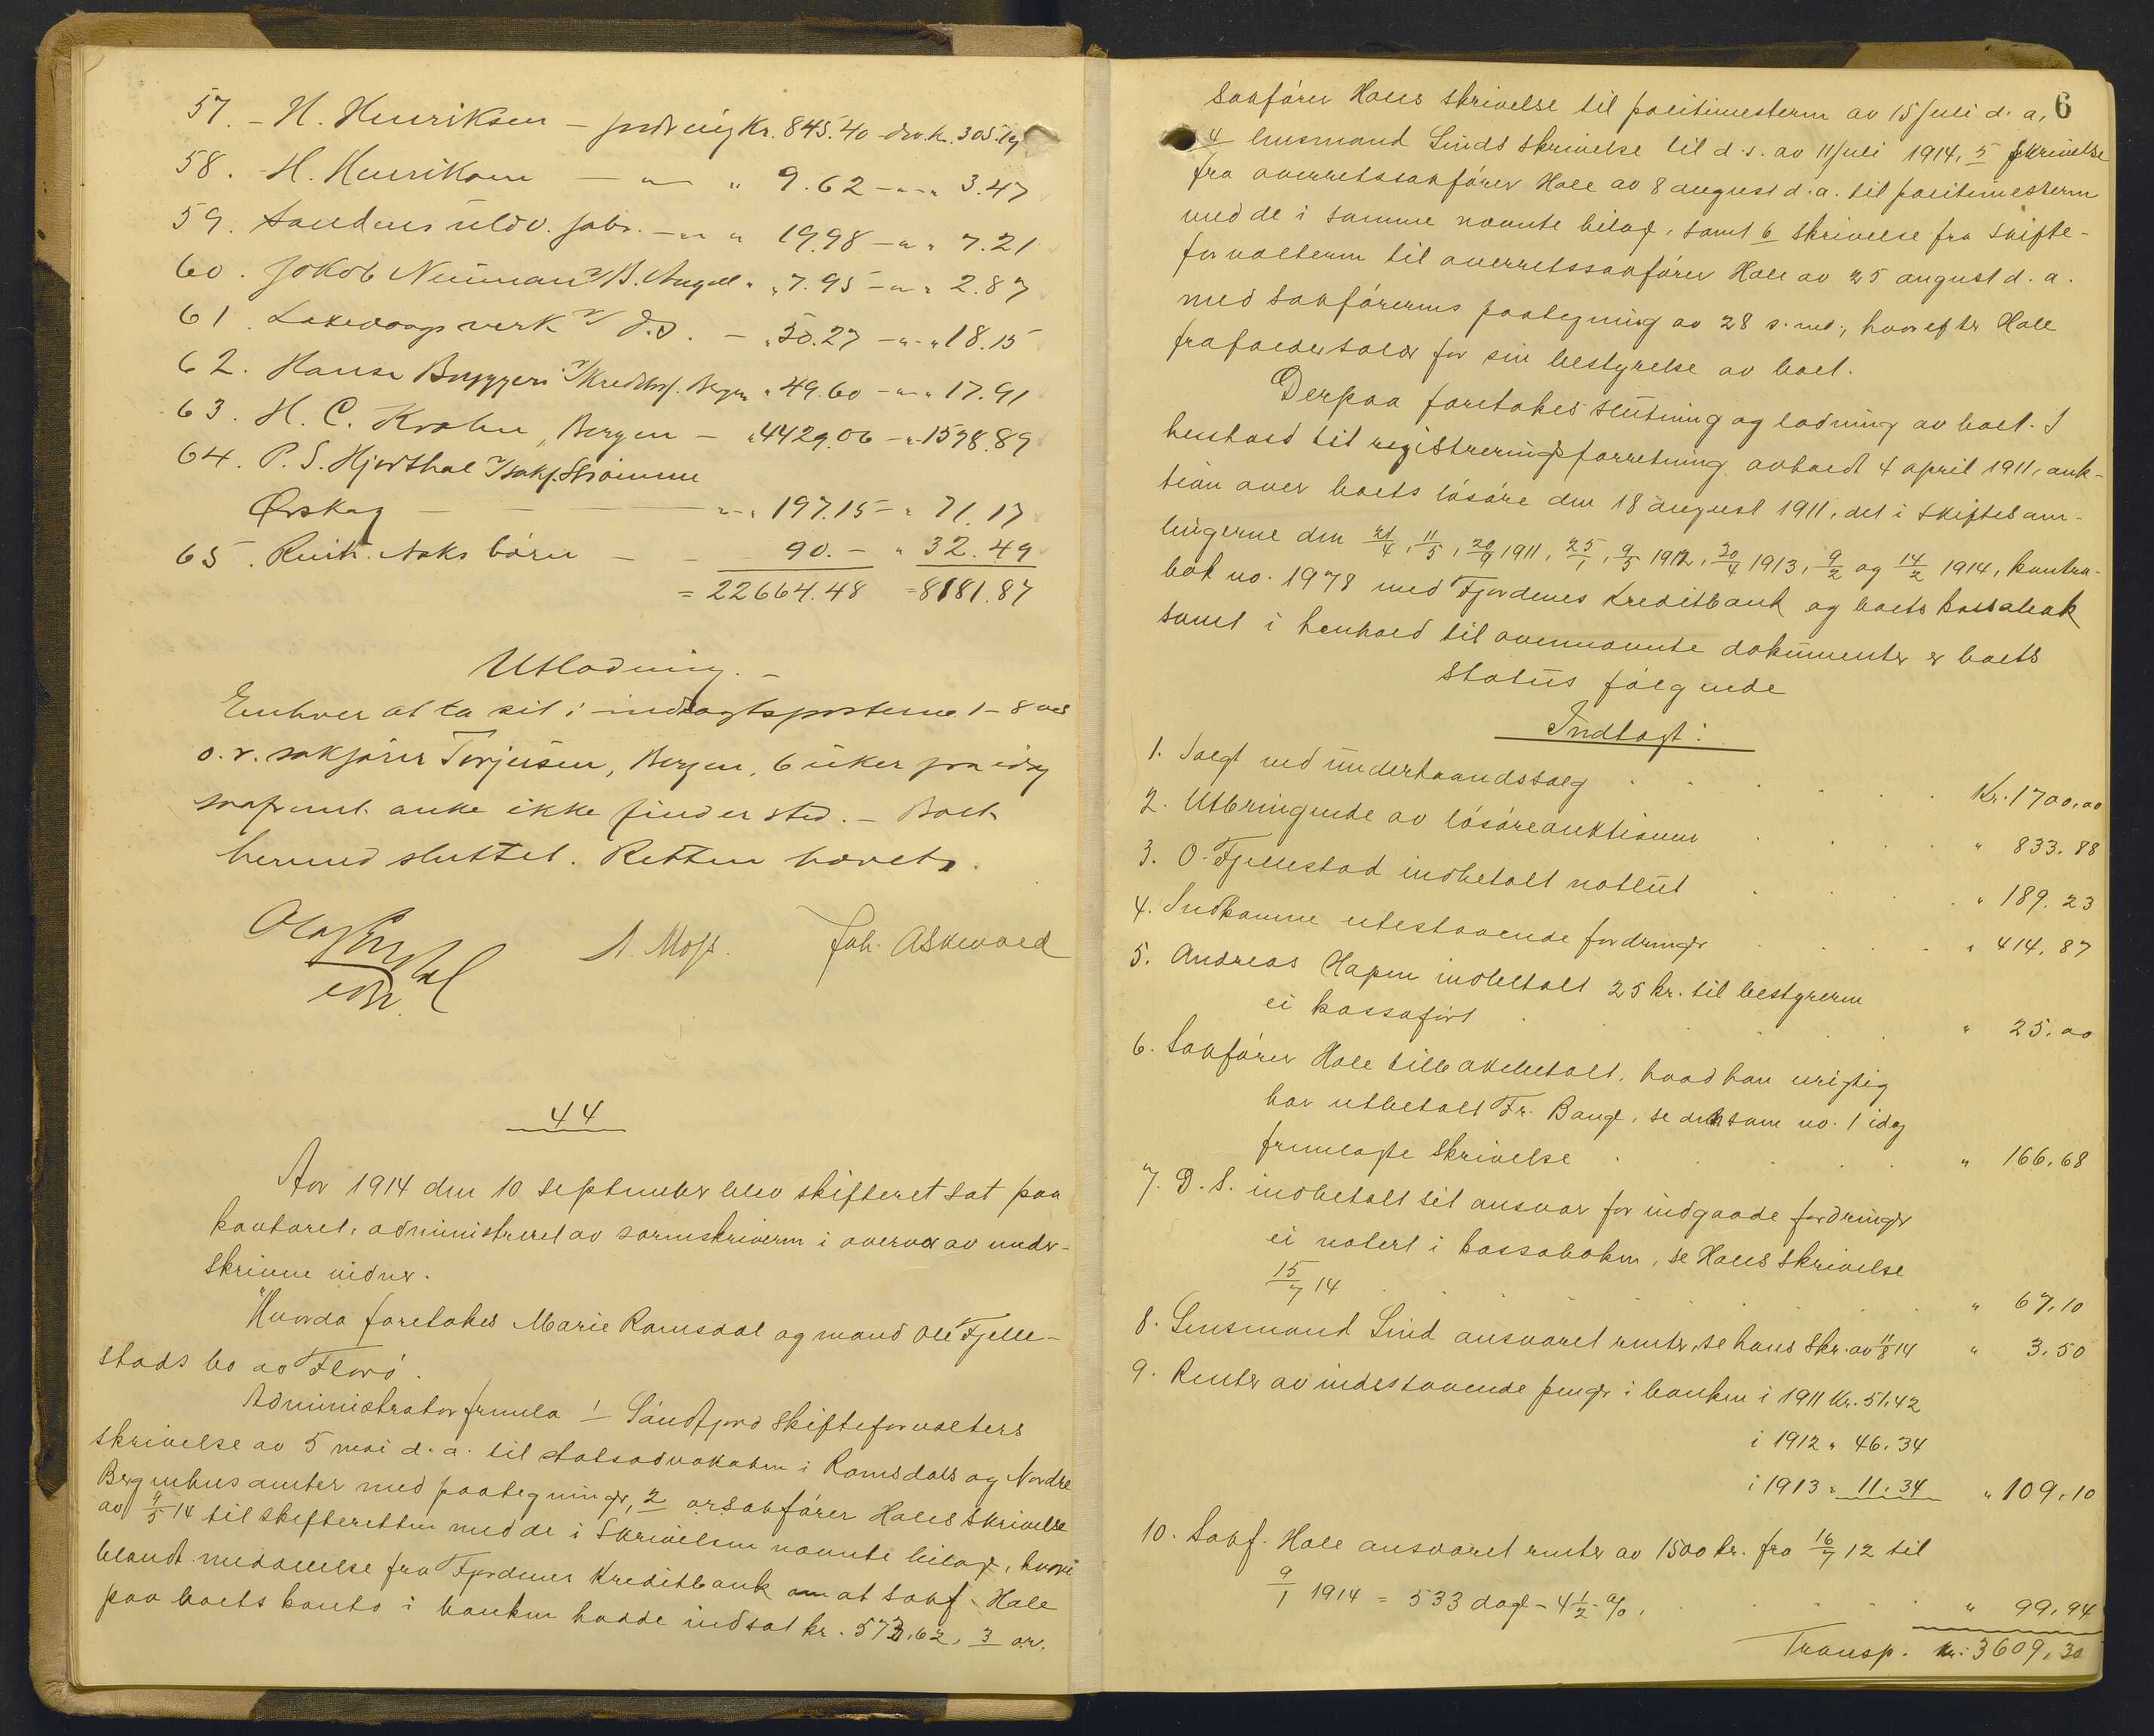 57. - H. Henriksen - fordring Kr. 845.40 - div. kr. 305.19
58. H. Henriksen - " - " 9.62 - " - " 3.47
59. Sandnes uldv. fabr. - " - " 19.98 - " - " 7.21
60. Jakob Neumann v/ B. Angell " " 7.95 - " - " 2.87
61. Laxevaags verk v/ d.s. - " 50.27 - " - " 18.15
62. Hansa Bryggeri v/ Kreditf. Bergen " 49.60 - " - " 17.91
63. H. C. Krohn, Bergen - " 4429.06 - " - 1598.89
64. P. S. Hjorthol v/ sakf. Strømme
Ørskog - - - " - " 197.15 - " 71.17
65. Rasm. Aaks børn - - 90. - " 32.49
= 22664.48 = 8181.87
Utlodning. -
Enhver at ta sit i indtægtsposterne 1-8 ved
o.r. sakfører Torjusen, Bergen, 6 uker fra idag
saafremt anke ikke finder sted. - Boet
hermed sluttet. Retten hævet.
A. Moss. Joh. Askevold
44
Aar 1914 den 10 september blev skifteret sat paa
kontoret, administreret av sorenskriveren i overvær av under-
skrevne vidner.
Hvorda foretokes Marie Ramsdal og mand Ole Fjelle-
stads bo av Florø.
Administrator fremla 1 Søndfjord skifteforvalters
skrivelse av 5 mai d.a. til statsadvokaten i Romsdals og Nordre
Bergenhus amter med paategninger, 2 orsakfører Holes skrivelse
av 9/5 14 til skifteretten med de i skrivelsen nævnte bilage, hvori
blandt meddelelse fra Fjordenes Kreditbank om at sakf. Hole
paa boets konto i banken hadde indsat kr. 573,62, 3 or.
6
sakfører Holes skrivelse til politimesteren av 15 juli d.a.,
4 lensmand Linds skrivelse til d.s. av 11 juli 1914, 5 skrivelse
fra overretssakfører Hole av 8 august d.a. til politimesteren
med de i samme nævnte bilag, samt 6 skrivelse fra skifte-
forvalteren til overretssakfører Hole av 25 august d.a.
med sakførerens paategning av 28 s.md., hvorefter Hole
frafalder salær for sin bestyrelse av boet.
Derpaa foretokes slutning og lodning av boet. I
henhold til registreringsforretning avholdt 4 april 1911, auk-
tion over boets løsøre den 18 august 1911, det i skiftesam-
lingerne den 21/4, 11/5, 20/9 1911, 25/1, 9/5 1912, 30/4 1913, 9/2 og 14/2 1914, kontra-
bok no. 1978 med Fjordenes Kreditbank og boets kassabok
samt i henhold til ovennævnte dokumenter er boets
status følgende
Indtægt:
1. Solgt ved underhaandssalg . . . . . Kr. 1700,00
2. Utbringende av løsøreauktionen . . . . " 833.88
3. O. Fjellestad indbetalt kontant . . . " 189.23
4. Indkomne utestaaende fordringer . . . . " 414,87
5. Andreas Hopen indbetalt 25 kr. til bestyreren
ei kassaført . . . . . " 25,00
6. Sakfører Hole tilbakebetalt, hvad han urigtig
har utbetalt Fr. Bauge, se den som no. 1 idag
fremlagte skrivelse . . . . " 166,68
7. D.S. indbetalt sit ansvar for indgaaede fordringer
ei notert i kassaboken, se Holes skrivelse
15/7 14 . . . . . . " 67,10
8. Lensmand Lind ansvaret renter, se hans skr. av 11/8 14 " 3,50
9. Renter av indestaaende penger i banken i 1911 Kr. 51,42
i 1912 " 46,34
i 1913 " 11,34 " 109,10
10. Sakf. Hole ansvaret renter av 1500 kr. fra 16/7 12 til
9/1 1914 = 533 dage - 4 1/2 % . . . . " 99,94
Transp. kr. 3609,30